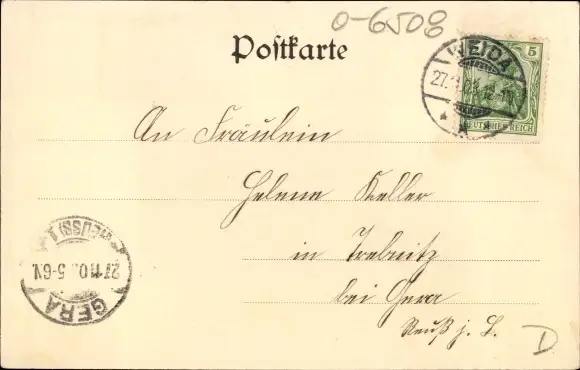 0-6508
Postkarte
WEIDA
27.
5
DEUTSCHES REICH
An Fräulein
Helene Keller
in Trebnitz
bei Gera
Reuß j. L.
D
GERA
27.11.0 5-6N.
(REUSS) 1